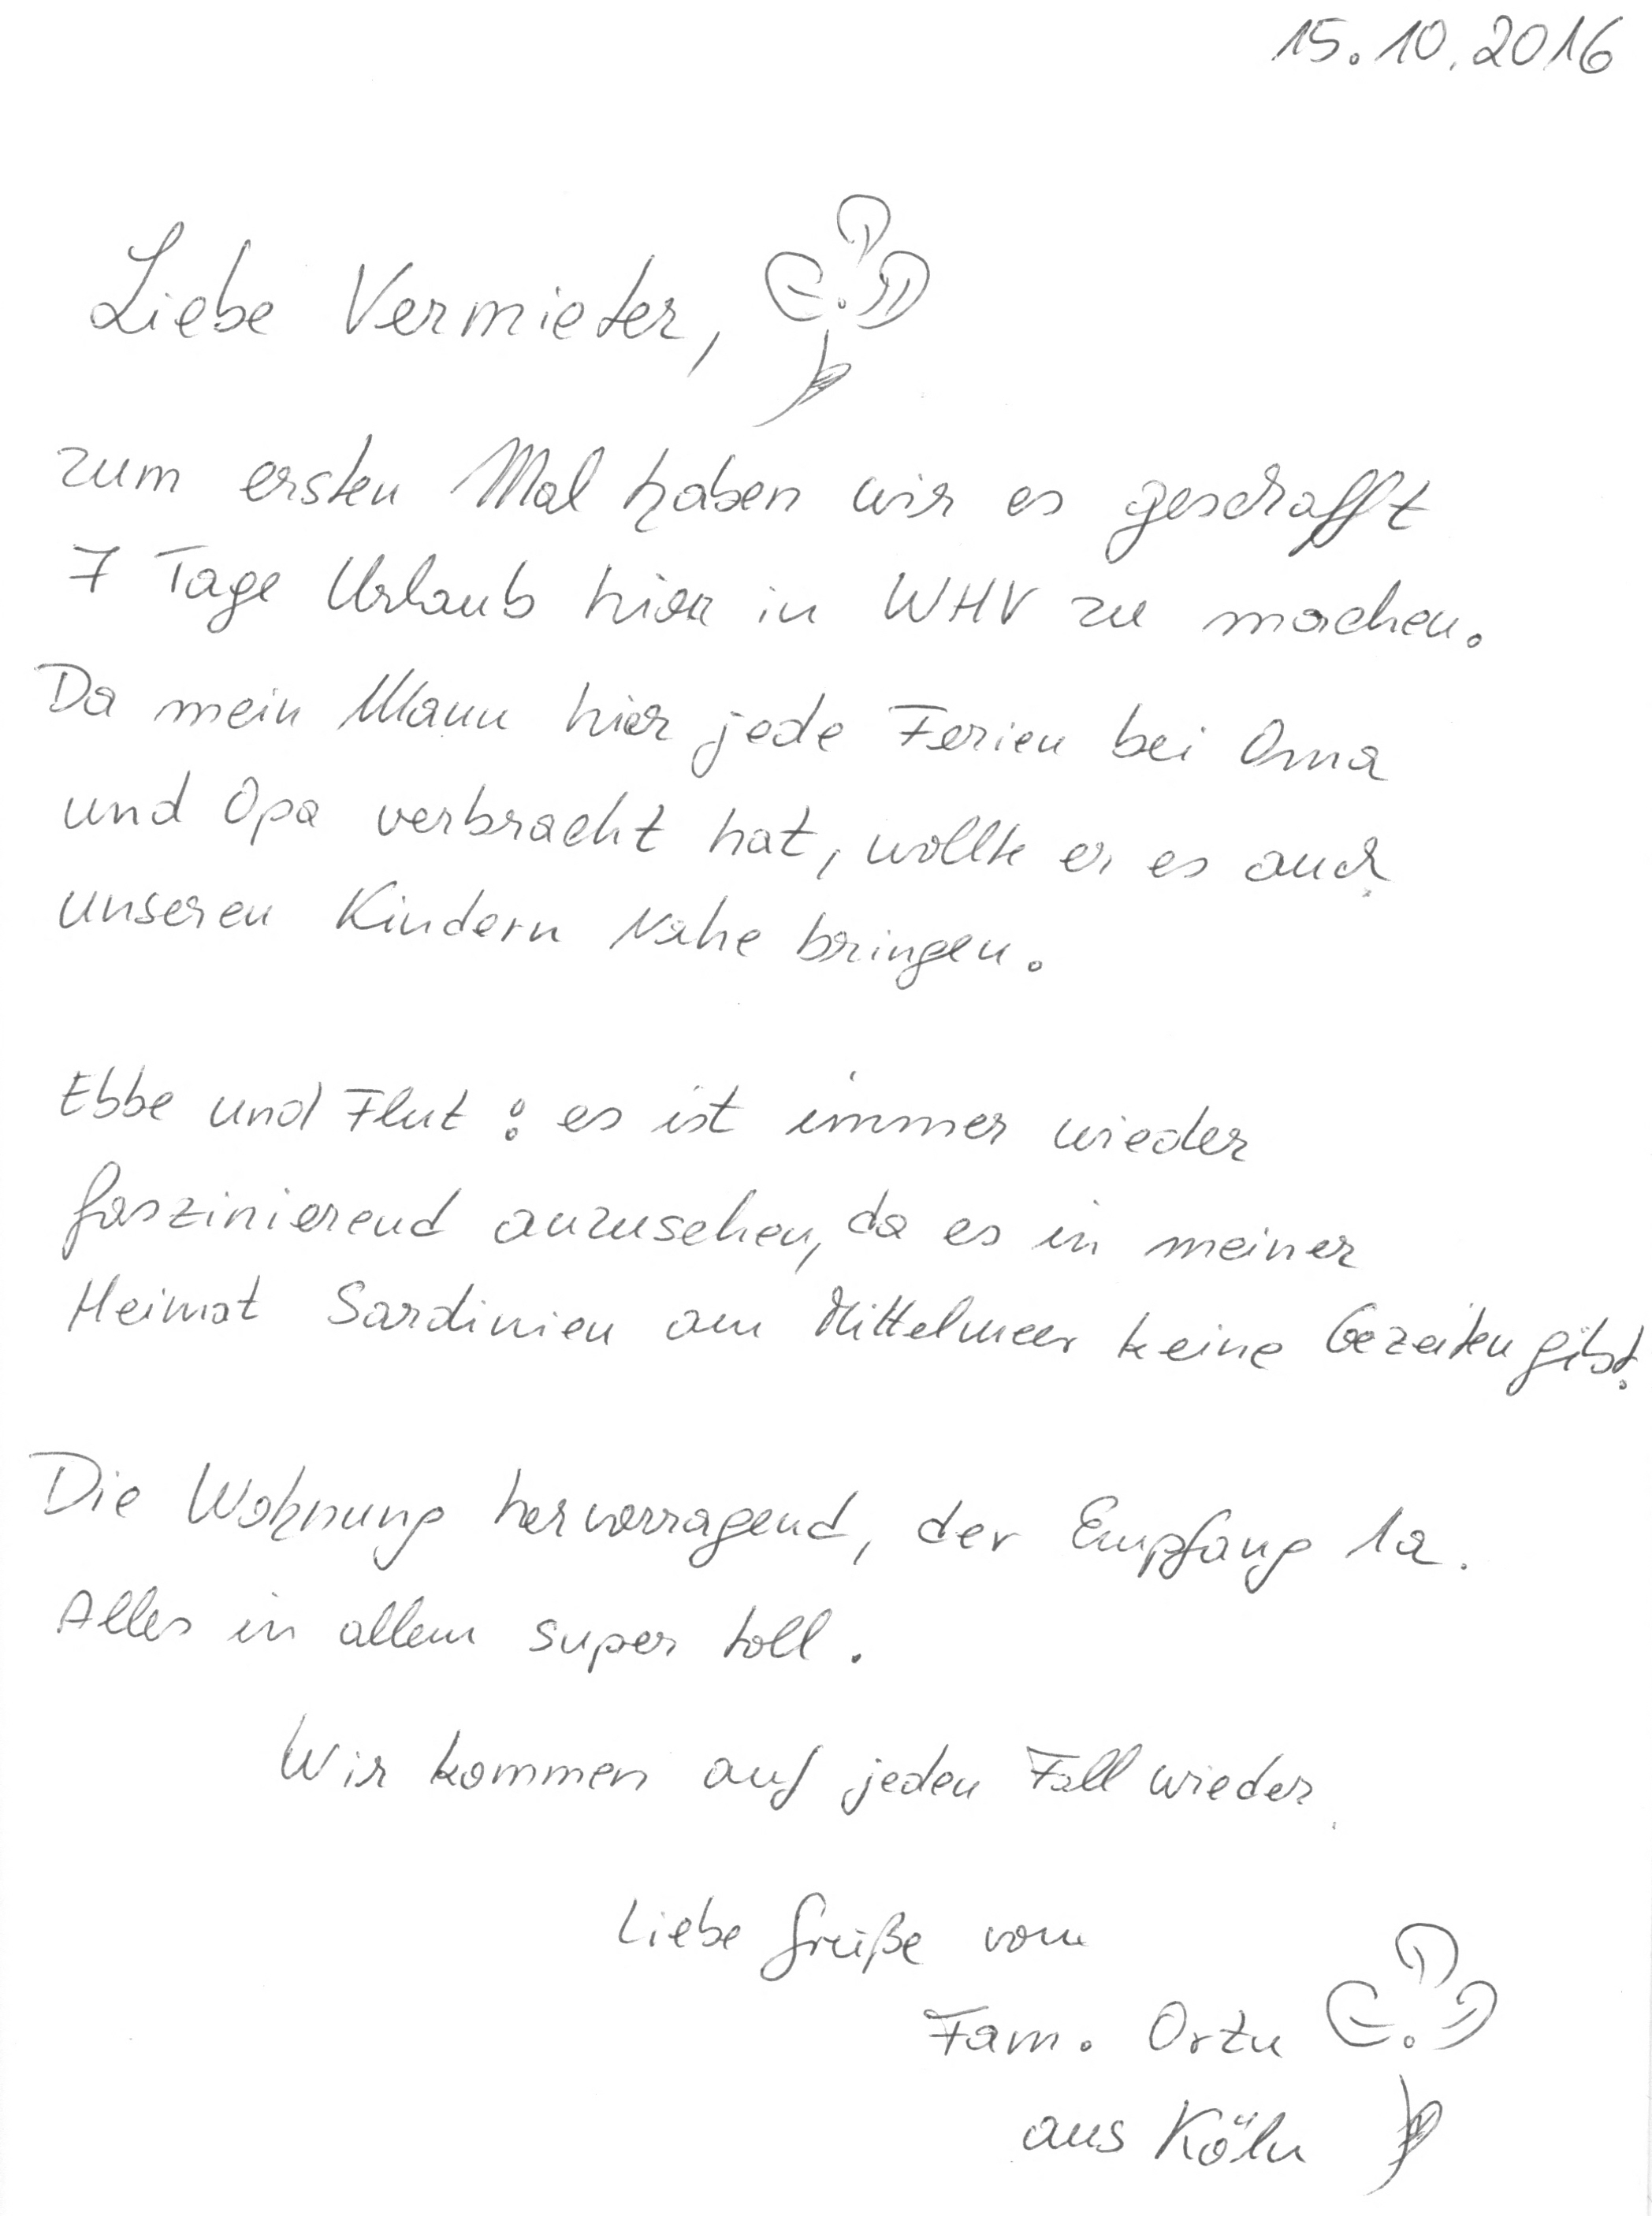 15.10.2016
Liebe Vermieter,
zum ersten Mal haben wir es geschafft
7 Tage Urlaub hier in WHV zu machen.
Da mein Mann hier jede Ferien bei Oma
und Opa verbracht hat, wollte er es auch
unseren Kindern Nahe bringen.
Ebbe und Flut: es ist immer wieder
faszinierend anzusehen, da es in meiner
Heimat Sardinien am Mittelmeer keine Gezeiten gibt.
Die Wohnung hervorragend, der Empfang 1a.
Alles in allem super toll.
Wir kommen auf jeden Fall wieder.
Liebe Grüße vom
Fam. Ortu
aus Köln